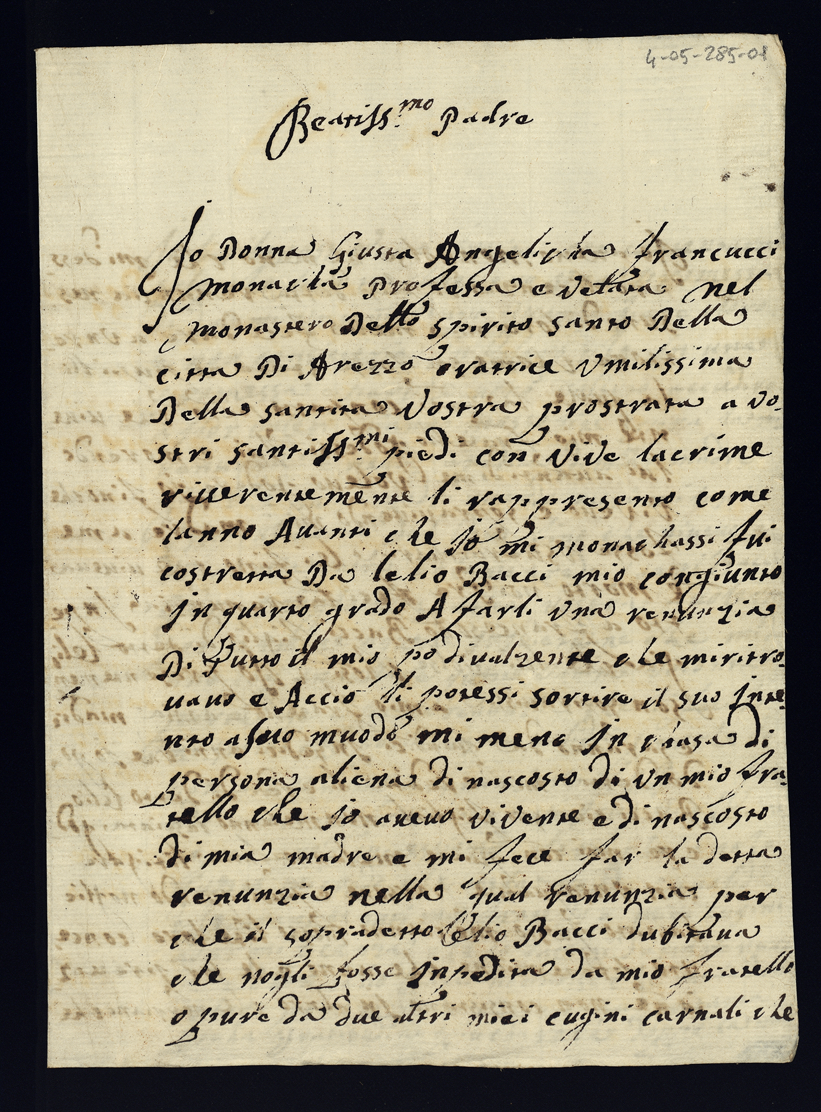 4-05-285-01
Beatiss.mo Padre
Io Donna Giusta Angelicha francucci
monacha Professa e Velata nel
monastero Dello spirito santo Della
citta Di Arezzo oratrice umilissima
Della santita Vostra prostrata a vo-
stri santiss.mi piedi con vive lacrime
riverentemente li rappresento come
lanno Avanti che io mi monachassi fui
costretta Da lelio Bacci mio congiunto
in quarto grado A farli una renunzia
Di Tutto il mio podivalzente che miritro-
vavo e Acciò li potessi sortire il suo inte-
nto a suo muodo mi meno in chasa di
persona aliena di nascosto di un mio fra-
tello che io avevo vivente e di nascosto
di mia madre e mi fece far la detta
renunzia nella qual renunzia per
che il sopradetto lelio Bacci dubitava
che nogli fosse inpedita da mio fratello
o pure da due altri miei cugini carnali che